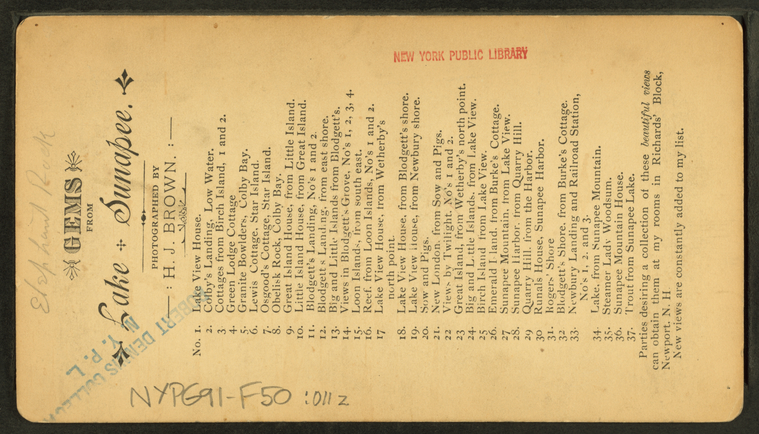 Elephant Rock
GEMS
FROM
Lake Sunapee.
PHOTOGRAPHED BY
H. J. BROWN.
No. 1. Lake View House.
2. Colby's Landing, Low Water.
3 Cottages from Birch Island, 1 and 2.
4 Green Lodge Cottage
5. Granite Bowlders, Colby Bay.
6. Lewis Cottage, Star Island.
7. Osgood's Cottage, Star Island.
8. Obelisk Rock, Colby Bay.
9. Great Island House, from Little Island.
10. Little Island House, from Great Island.
11. Blodgett's Landing, No's 1 and 2.
12. Blodgett's Landing from east shore.
13. Big and Little Islands from Blodgett's.
14. Views in Blodgett's Grove, No's 1, 2, 3, 4.
15. Loon Islands, from south east.
16. Reef from Loon Islands, No's 1 and 2.
17 Lake View House, from Wetherby's
north point.
18. Lake View House, from Blodgett's shore.
19. Lake View House, from Newbury shore.
20. Sow and Pigs.
21. New London, from Sow and Pigs.
22 Views by Twilight, No's 1 and 2.
23 Great Island, from Wetherby's north point.
24. Big and Little Islands, from Lake View.
25 Birch Island from Lake View.
26. Emerald Island, from Burke's Cottage.
27 Sunapee Mountain, from Lake View.
28. Sunapee Harbor, from Quarry Hill.
29 Quarry Hill, from the Harbor.
30 Runals House, Sunapee Harbor.
31. Rogers' Shore
32 Blodgett's Shore, from Burke's Cottage.
33. Newbury Landing and Railroad Station,
No's 1, 2, and 3.
34 Lake, from Sunapee Mountain.
35. Steamer Lady Woodsum.
36. Sunapee Mountain House.
37. Trout from Sunapee Lake.
Parties desiring a collection of these beautiful views
can obtain them at my rooms in Richards' Block,
Newport, N. H
New views are constantly added to my list.
NEW YORK PUBLIC LIBRARY
ROBERT DENNIS COLLECTION
N. Y. P. L.
NYPG91-F50 :011z